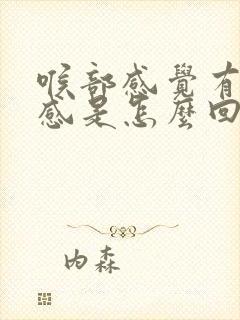 喉部感覺有
感是怎麼回
內森